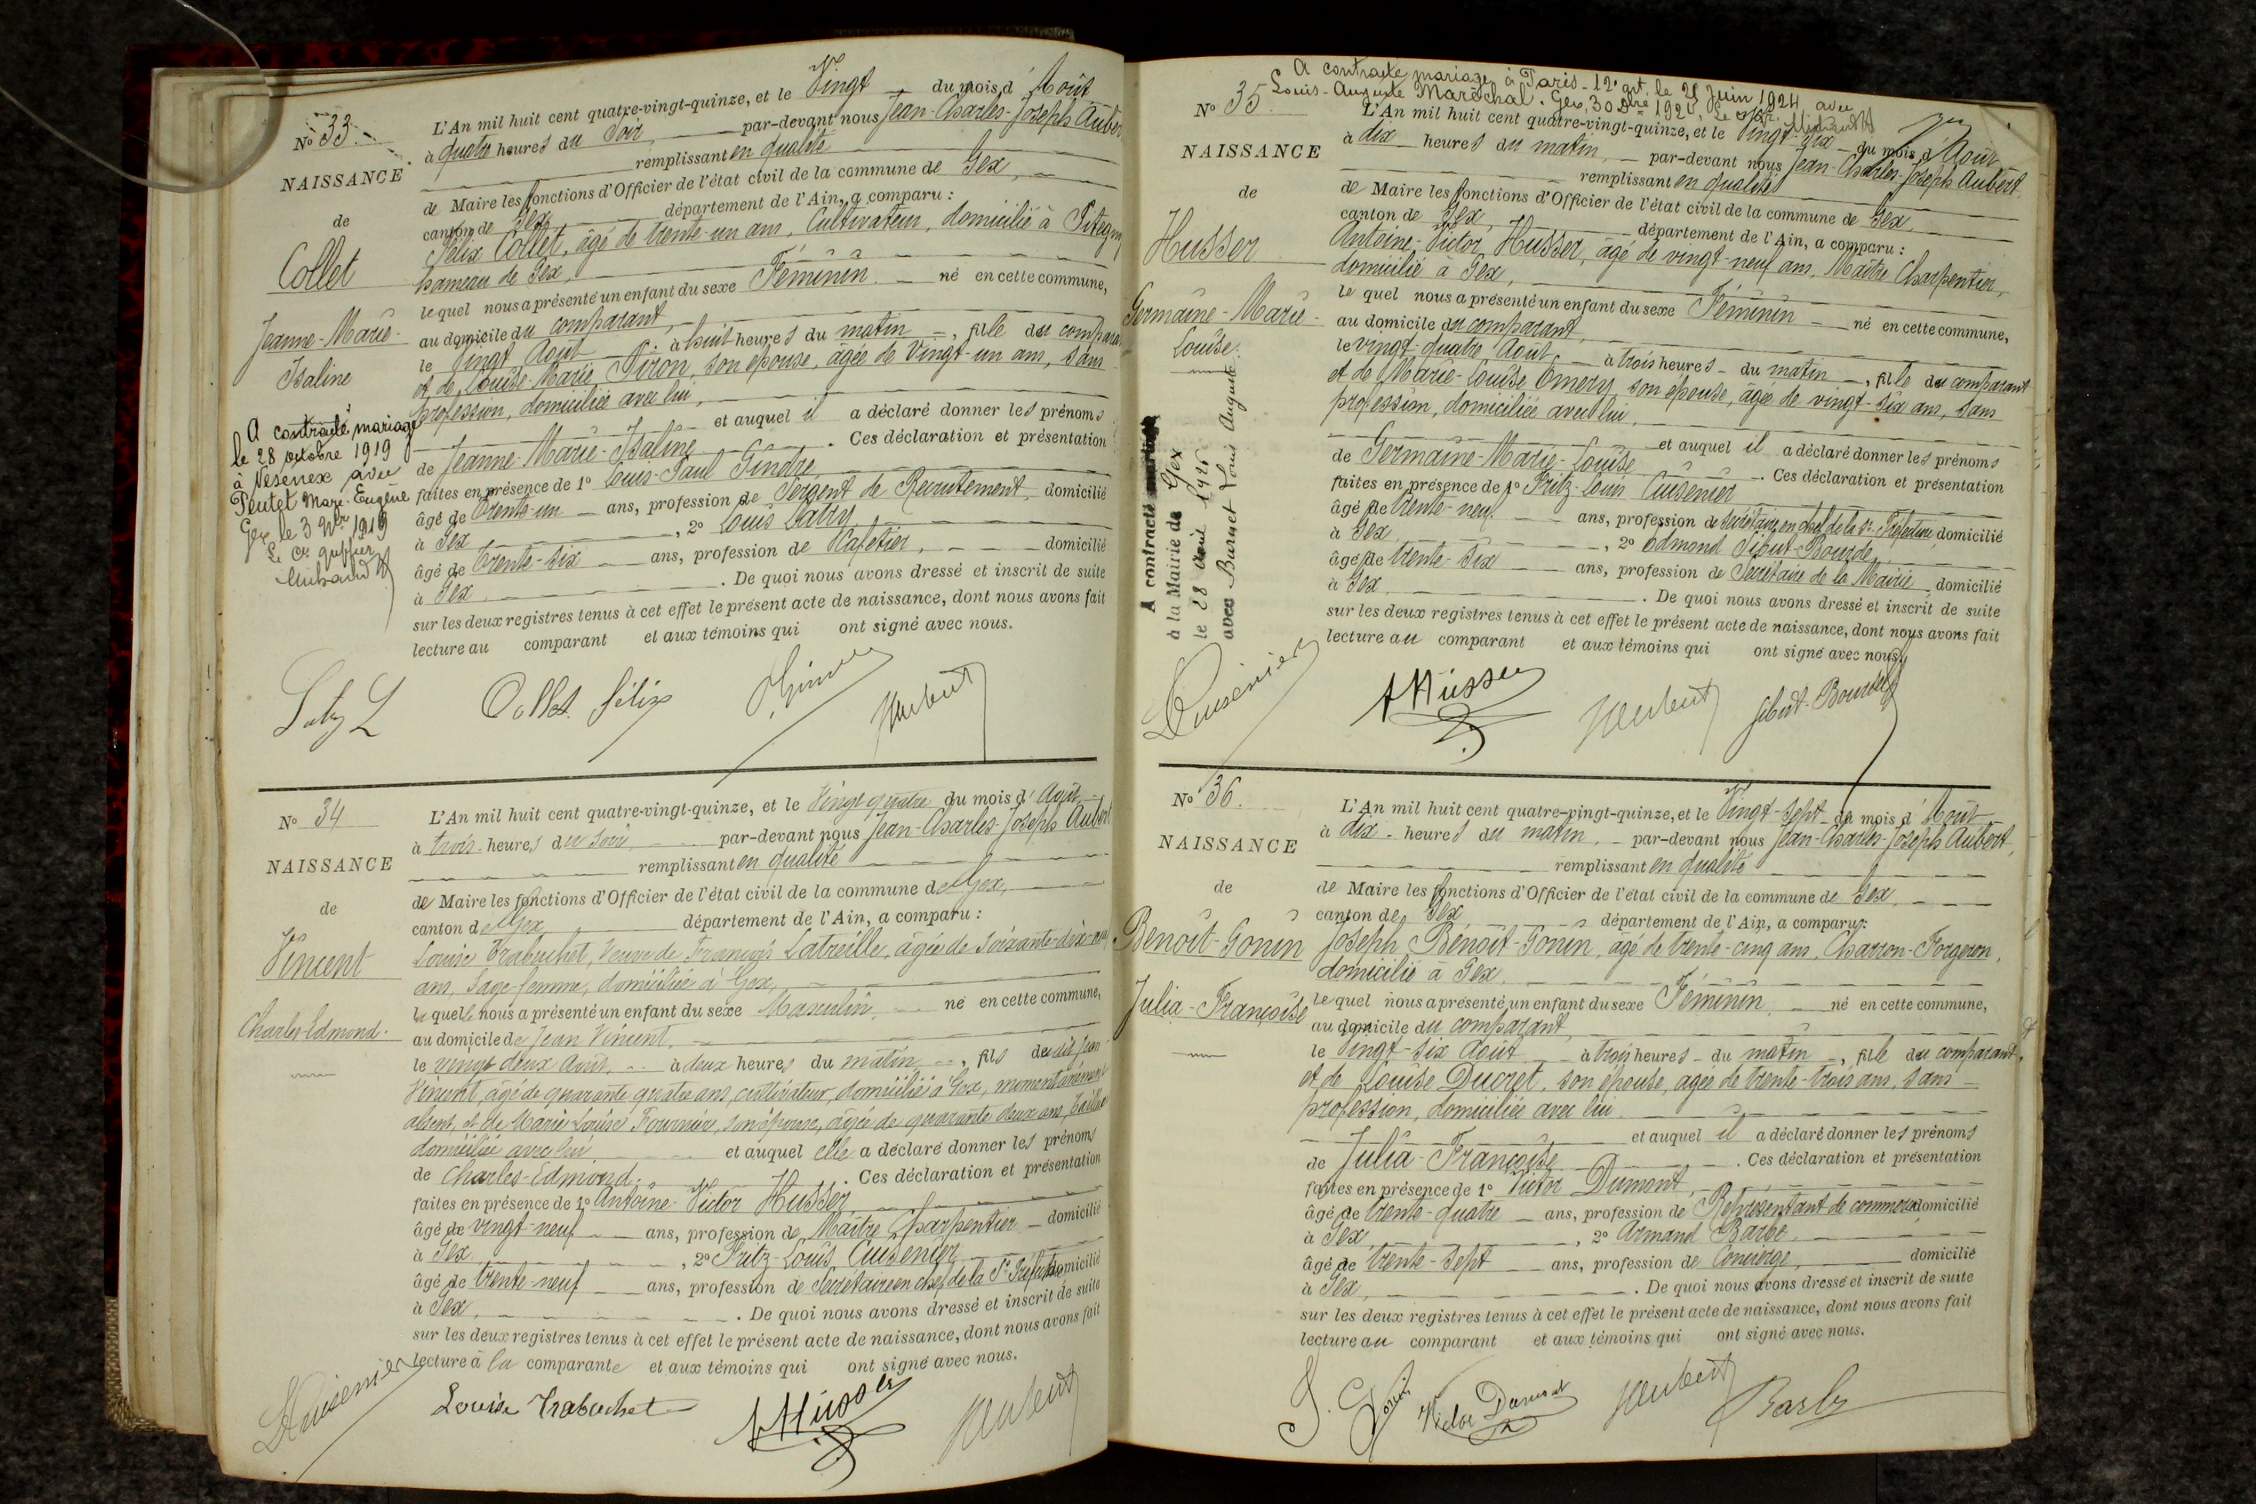 No 33
NAISSANCE
de
Collet
Jeanne-Marie-
Isaline
A contracté mariage
le 28 octobre 1919
à Vesenex avec
Peutet Marc-Eugène
Gex, le 3 9bre 1919
Le greffier
L'An mil huit cent quatre-vingt-quinze, et le Vingt du mois d'Août
à quatre heures du Soir par-devant nous Jean-Charles-Joseph Aubert
remplissant en qualité
de Maire les fonctions d'Officier de l'état civil de la commune de Gex,
canton de Gex département de l'Ain, a comparu :
Félix Collet, âgé de trente-un ans, Cultivateur, domicilié à Pitegny
hameau de Gex,
lequel nous a présenté un enfant du sexe Féminin né en cette commune,
au domicile du comparant,
le Vingt Août à huit heures du matin, fille du comparant
et de Louise-Marie Piron, son épouse, âgée de Vingt-un ans, sans
profession, domiciliée avec lui,
et auquel il a déclaré donner les prénoms
de Jeanne-Marie-Isaline. Ces déclaration et présentation
faites en présence de 1o Louis-Paul Gindre
âgé de trente-un ans, profession de Sergent de Recrutement, domicilié
à Gex, 2o Louis Latty
âgé de trente-six ans, profession de Cafetier, domicilié
à Gex. De quoi nous avons dressé et inscrit de suite
sur les deux registres tenus à cet effet le présent acte de naissance, dont nous avons fait
lecture au comparant et aux témoins qui ont signé avec nous.
Collet félix
No 34
NAISSANCE
de
Vincent
Charles-Edmond.
L'An mil huit cent quatre-vingt-quinze, et le Vingt quatre du mois d'Août
à trois heures du soir par-devant nous Jean-Charles-Joseph Aubert
remplissant en qualité
de Maire les fonctions d'Officier de l'état civil de la commune de Gex,
canton de Gex département de l'Ain, a comparu :
Louise Trabuchet, Veuve de François Latreille, âgée de soixante-dix-neuf
ans, Sage-femme, domiciliée à Gex,
lequelle nous a présenté un enfant du sexe Masculin, né en cette commune,
au domicile de Jean Vincent,
le vingt deux août, à deux heures du matin, fils dudit Jean
Vincent, âgé de quarante quatre ans, cultivateur, domicilié à Gex, momentanément
absent, et de Marie Louise Fournier, son épouse, âgée de quarante deux ans,
domiciliée avec lui et auquel elle a déclaré donner les prénoms
de Charles-Edmond. Ces déclaration et présentation
faites en présence de 1o Antoine-Victor Husser,
âgé de vingt-neuf ans, profession de Maître Charpentier domicilié
à Gex, 2o Fritz-Louis Cusenier
âgé de trente-neuf ans, profession de Secrétaire en chef de la Ss-Préfecture domicilié
à Gex. De quoi nous avons dressé et inscrit de suite
sur les deux registres tenus à cet effet le présent acte de naissance, dont nous avons fait
lecture à la comparante et aux témoins qui ont signé avec nous.
LCusenier Louise Trabuchet AHusser Aubert
A contracté mariage à Paris-12e art. le 21 Juin 1924, avec
Louis-Auguste Maréchal. Gex,
No 35
NAISSANCE
de
Husser
Germaine-Marie-
Louise.
A contracté mariage
à la Mairie de Gex
le 28
avec Burnet Louis Auguste
L'An mil huit cent quatre-vingt-quinze, et le Vingt-six du mois d'Août
à dix heures du matin, par-devant nous Jean-Charles-Joseph Aubert,
remplissant en qualité
de Maire les fonctions d'Officier de l'état civil de la commune de Gex,
canton de Gex, département de l'Ain, a comparu :
Antoine-Victor Husser, âgé de vingt-neuf ans, Maître Charpentier,
domicilié à Gex,
le quel nous a présenté un enfant du sexe Féminin né en cette commune,
au domicile du comparant,
le vingt-quatre Août, à trois heures du matin, fille du comparant
et de Marie-Louise Emery, son épouse, âgée de vingt-six ans, sans
profession, domiciliée avec lui,
et auquel il a déclaré donner les prénoms
de Germaine-Marie-Louise. Ces déclaration et présentation
faites en présence de 1o Fritz-Louis Cusenier
âgé de trente-neuf ans, profession de Secrétaire en chef de la Ss-Préfecture, domicilié
à Gex, 2o Edmond Sibut-Bourde,
âgé de trente-six ans, profession de Secrétaire de la Mairie, domicilié
à Gex. De quoi nous avons dressé et inscrit de suite
sur les deux registres tenus à cet effet le présent acte de naissance, dont nous avons fait
lecture au comparant et aux témoins qui ont signé avec nous.
LCusenier AHusser Aubert Sibut-Bourde
No 36.
NAISSANCE
de
Benoît-Gonin
Julia-Françoise
L'An mil huit cent quatre-vingt-quinze, et le Vingt-sept du mois d'Août
à dix heures du matin, par-devant nous Jean-Charles-Joseph Aubert,
remplissant en qualité
de Maire les fonctions d'Officier de l'état civil de la commune de Gex,
canton de Gex département de l'Ain, a comparu :
Joseph Bénoît-Gonin, âgé de trente-cinq ans, Charron-Forgeron,
domicilié à Gex,
le quel nous a présenté un enfant du sexe Féminin, né en cette commune,
au domicile du comparant,
le Vingt-six Août à trois heures du matin, fille du comparant,
et de Louise Ducret, son épouse, agée de trente-trois ans, sans
profession, domiciliée avec lui
et auquel il a déclaré donner les prénoms
de Julia-Françoise. Ces déclaration et présentation
faites en présence de 1o Victor Dumont,
âgé de trente-quatre ans, profession de Représentant de commerce domicilié
à Gex, 2o Armand Barbe,
âgé de trente-sept ans, profession de Concierge, domicilié
à Gex. De quoi nous avons dressé et inscrit de suite
sur les deux registres tenus à cet effet le présent acte de naissance, dont nous avons fait
lecture au comparant et aux témoins qui ont signé avec nous.
Victor Dumont Aubert